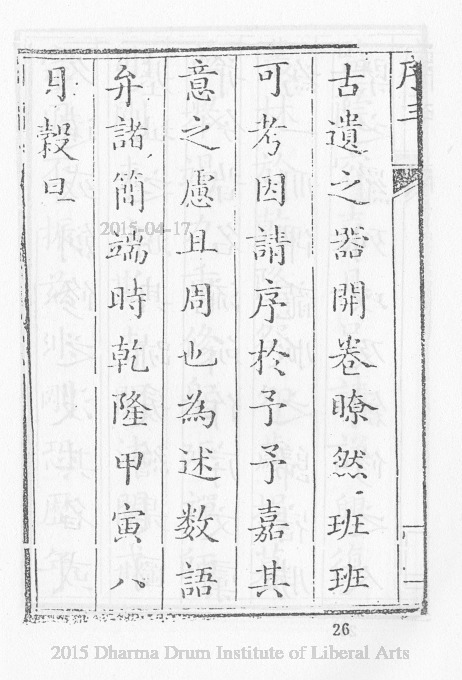 序三
古遺之器開卷瞭然班班
可考因請序於予予嘉其
意之慮且周也為述数語
弁諸簡端時乾隆甲寅八
月穀旦
2015-04-17
26
2015 Dharma Drum Institute of Liberal Arts